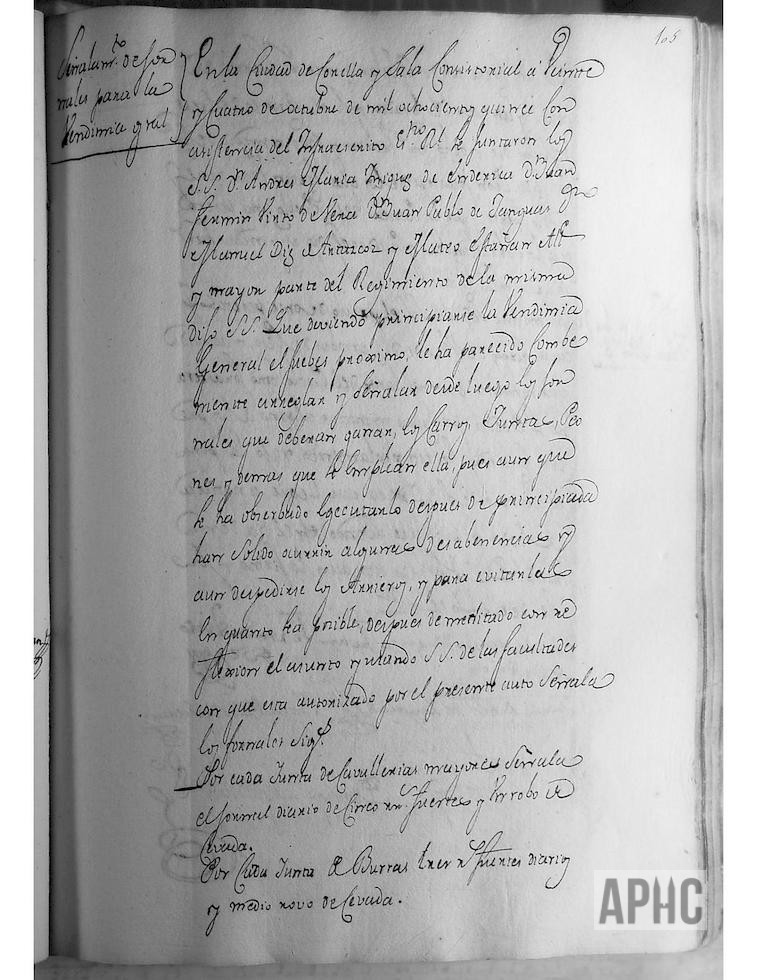 105
Señalam.to de Jor
nales para la
Vendimia gral
En la Ciudad de Corella y Sala Consistorial á Veinte
y Cuatro de octubre de mil ochocientos quince Con
asistencia del Infraescrito Es.no Rl se Juntaron los
S.S. D.n Andres Maria Iñiguez de D.n Juan
Fermin Virto de Vera D.n Juan Pablo de Tanguas
Manuel Diz de Antarcoz y Mateo Estañan
y mayor parte del Regimiento de la misma
dijo S.S. Que deviendo principiarse la Vendimia
General el juebes proximo, le ha parecido Combe
niente arreglar y Señalar desde luego los Jor
nales que deberan ganar, los Carros, Juntas, Peo
nes y demas que se Emplean ella, pues aun que
se ha obserbado Egecutarlo despues de principiada
han Solido ocurrir algunas desabenencias y
aun despedirse los Arrieros, y para evitarlas
En quanto sea posible, despues de meditado con re
flexion el asunto y usando S.S. de las facultades
con que esta autorizado por el presente auto Señala
los Jornales Sig.s
Por cada Junta de Cavallerias mayores Señala
el Jornal diario de Cinco rr.s fuertes y Un robo de
Cevada.
Por Cada Junta de Burras tres r.s fuertes diarios
y medio rovo de Cevada.
APHC